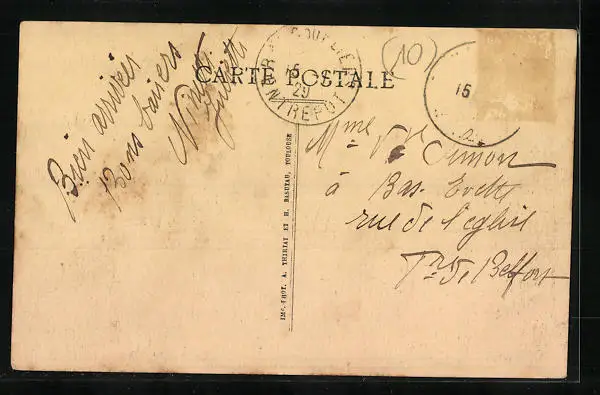 CARTE POSTALE
ENTREPOT
15
29
10
15
Bien arrivées
Bons baisers
IMP.-PHOT. A. THIRIAT ET H. BASUYAU, TOULOUSE
Mme Vve Simon
à Bas. Evette
rue de l'église
Tre de Belfort